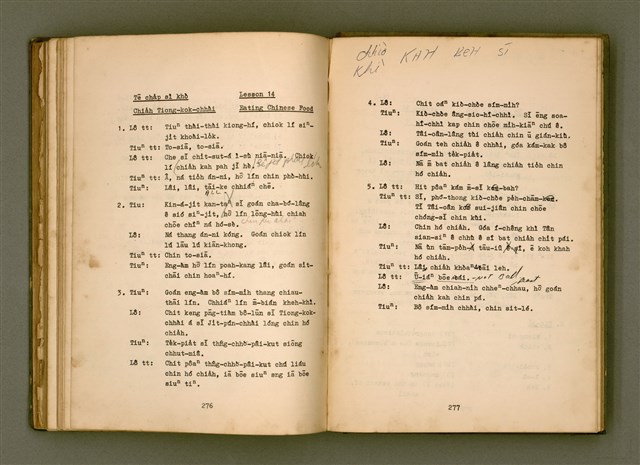 Tē cha̍p sì khò Lesson 14
Chia̍h Tiong-kok-chhài Eating Chinese Food
1. Lô tt: Tiuⁿ thài-thài kiong-hí, chiok lí siⁿ-
ji̍t khoài-lo̍k.
Tiuⁿ tt: To-siā, to-siā.
Lô tt: Che sī chi̍t-sut-á ì-sù niā-niā. Chiok
lí chia̍h kah pah jī hè.
Tiuⁿ tt: Ai, ná tio̍h án-ni, hō͘ lín chin phò-hùi.
Tiuⁿ: Lâi, lâi, tāi-ke chhiáⁿ chē.
ALL
2. Tiu: Kin-á-ji̍t kan-taⁿ sī goán cha-bó͘-lâng
ê sió siⁿ-ji̍t, hō͘ lín lóng-hùi chiah
chōe chîⁿ ná hó-sè.
Lô: Ná thang án-ni kóng. Goán chiok lín
lú lāu lú kiān-khong.
Tiuⁿ tt: Chin to-siā.
Tiuⁿ: Eng-àm hō͘ lín poah-kang lâi, goán si̍t-
chāi chin hoaⁿ-hí.
3. Tiuⁿ: Goán eng-àm bô sím-mi̍h thang chiau-
thāi lín. Chhiáⁿ lín m̄-bián kheh-khì.
Lô: Chit keng pn̄g-tiàm bô-lūn sī Tiong-kok-
chhài á sī Ji̍t-pún-chhài lóng chin hó
chia̍h.
Tiuⁿ: Te̍k-pia̍t sī thn̂g-chhò͘-pâi-kut siōng
chhut-miâ.
Lô tt: Chit pôaⁿ thn̂g-chhò͘-pâi-kut chú liáu
chin hó chia̍h, iā bōe siuⁿ sng iā bōe
siuⁿ tiⁿ.
276
khì KHH BEH SÍ
4. Lô: Chit oáⁿ kiò-chòe sím-mi̍h?
Tiuⁿ: Kiò-chòe âng-sio-hî-chhì. Sī ēng soa-
hî-chhì kap chin chōe mi̍h-kiāⁿ chú ê.
Lô: Tâi-oân-lâng tùi chia̍h chin ū gián-kiù.
Tiuⁿ: Goán teh chia̍h ê chhài, góa kám-kak bô
sím-mi̍h te̍k-pia̍t.
Lô: Nā m̄ bat chia̍h ê lâng chia̍h tio̍h chin
hó chia̍h.
5. Lô tt: Hit pôaⁿ kám m̄-sī ke-bah?
Tiuⁿ tt: Sī, phó͘-thong kiò-chòe pe̍h-chám-ke.
Tī Tâi-oân ke sui-jiân chin chōe
chóng-sī chin kùi.
Lô: Chin hó chia̍h. Góa í-chêng khì Tân
sian-siⁿ ê chhù ê sî bat chia̍h chi̍t pái.
Tiuⁿ tt: Lâi, chia̍h khòaⁿ-bāi leh.
Lô tt: Ū-iáⁿ bōe-bái. - not bad
Lô: Eng-àm chiah-ni̍h chheⁿ-chhau, hō͘ goán
chia̍h kah chin pá.
Tiuⁿ: Bô sím-mi̍h chhài, chin sit-lé.
277